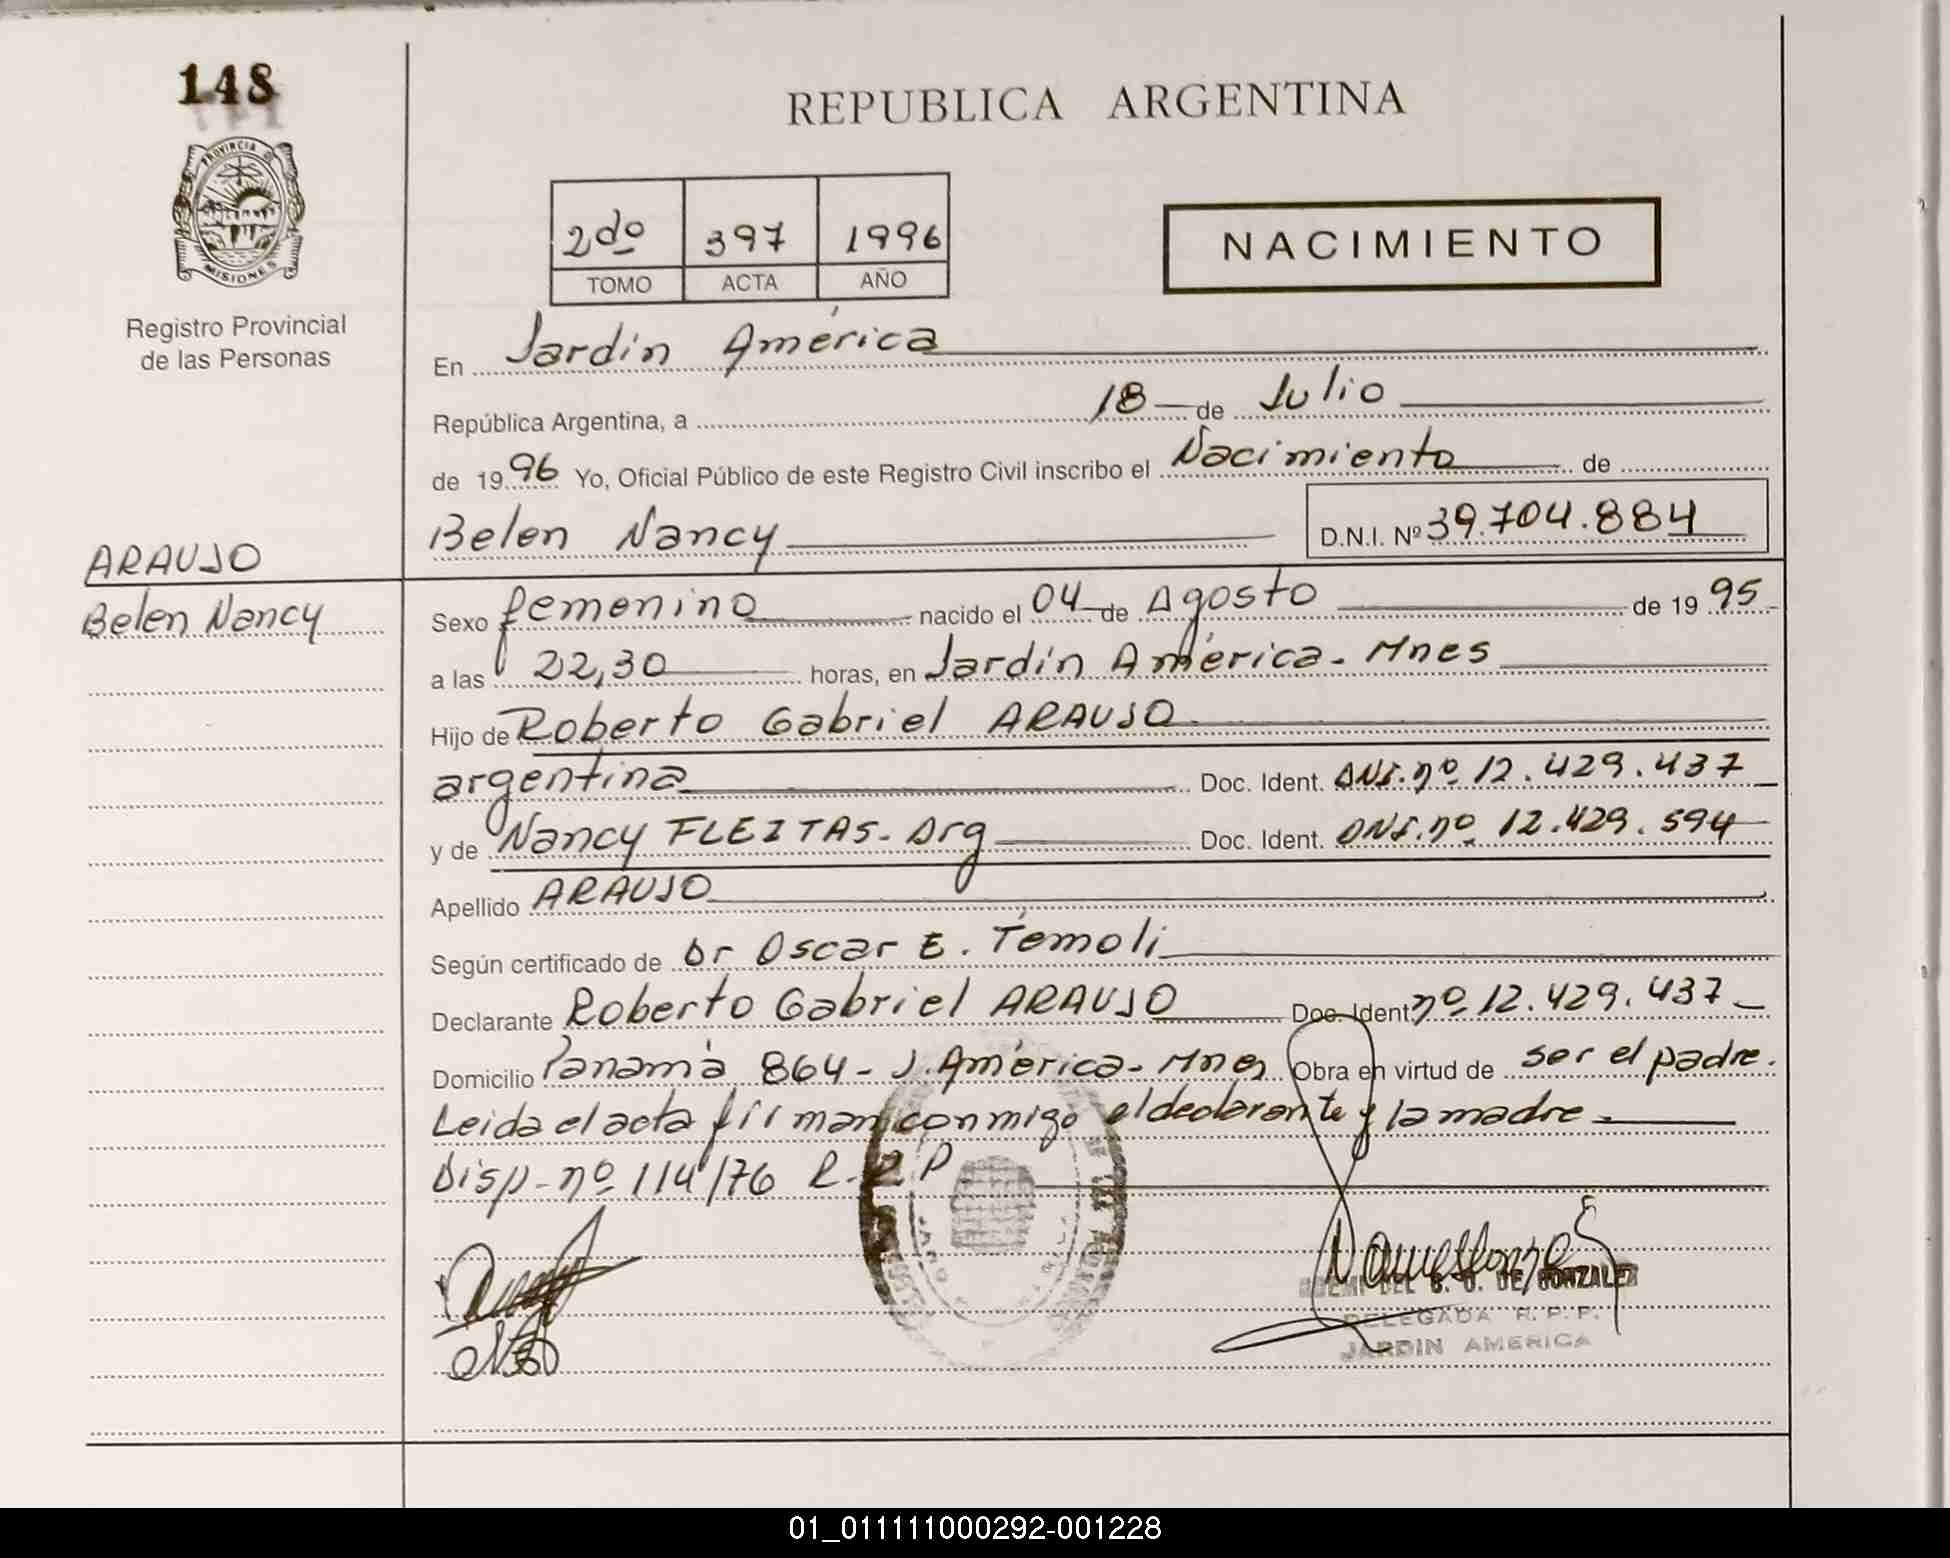 148
REPUBLICA ARGENTINA
PROVINCIA DE
MISIONES
Registro Provincial
de las Personas
2do 397 1996
TOMO ACTA AÑO
NACIMIENTO
En Jardín América
República Argentina, a 18 de Julio
de 1996 Yo, Oficial Público de este Registro Civil inscribo el Nacimiento de
Belen Nancy D.N.I. Nº 39.704.884
ARAUJO
Belen Nancy
Sexo femenino nacido el 04 de Agosto de 1995
a las 22,30 horas, en Jardín América - Mnes
Hijo de Roberto Gabriel ARAUJO
argentina Doc. Ident. DNI. nº 12.429.437
y de Nancy FLEITAS - Arg Doc. Ident. DNI. nº 12.429.594
Apellido ARAUJO
Según certificado de Dr Oscar E. Témoli
Declarante Roberto Gabriel ARAUJO Doc. Ident nº 12.429.437
Domicilio Panamá 864 - J. América - Mnes Obra en virtud de ser el padre.
Leida el acta firman conmigo el declarante y la madre
Disp - nº 114/76 R.R.P
DE GONZALEZ
DELEGADA R. P. P.
JARDIN AMERICA
01_011111000292-001228